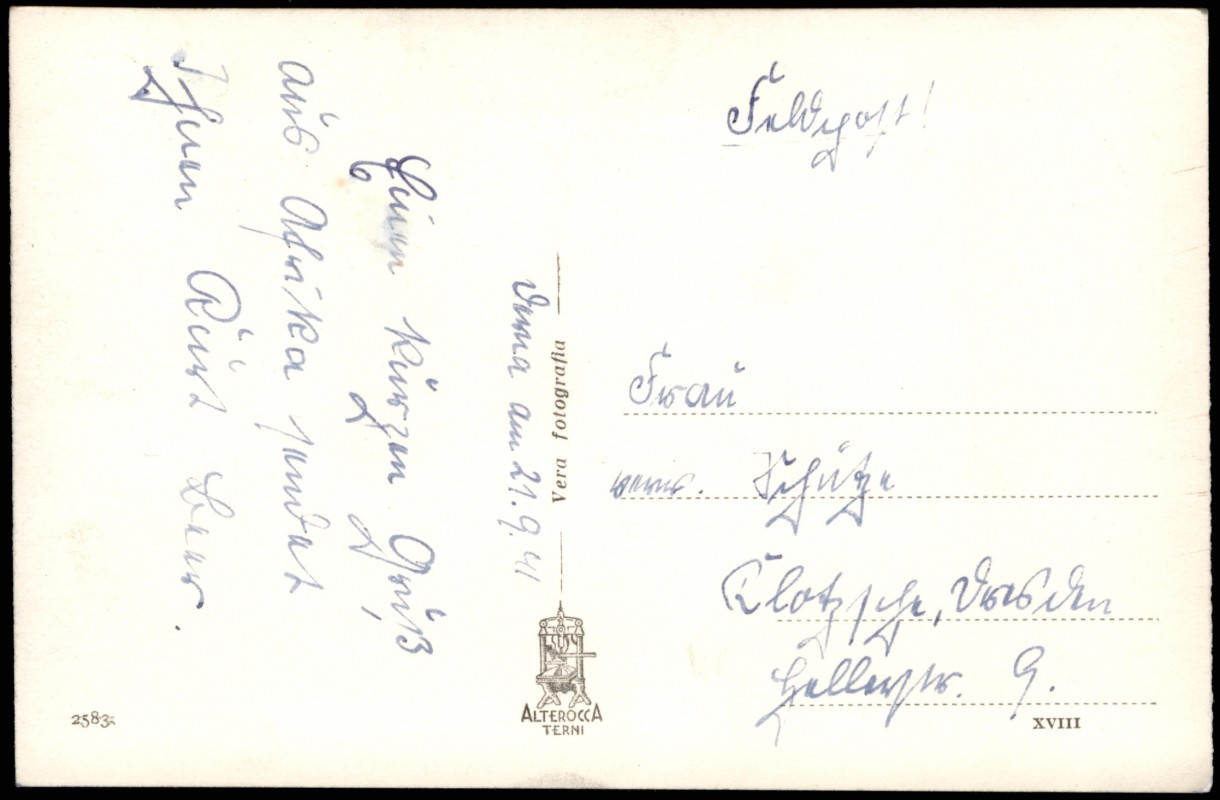 Einen kurzen Gruß
aus Afrika sendet
Ihnen Kurt Beer.
Derna am 21.9.41
Vera fotografia
ALTEROCCA
TERNI
2583
Feldpost!
Frau
verw. Schütze
Klotzsche, Dresden
Hellerstr. 9.
XVIII